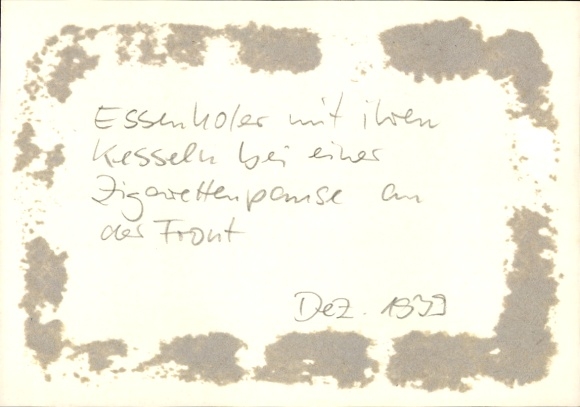 Essenholer mit ihren
Kesseln bei einer
Zigarettenpause an
der Front
Dez. 1939